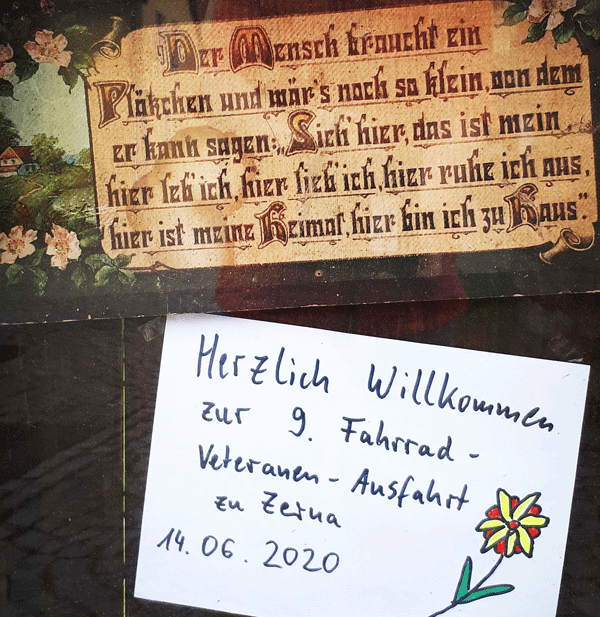 „Der Mensch braucht ein
Plätzchen und wär's noch so klein, von dem
er kann sagen: „Sieh' hier, das ist mein
hier leb' ich, hier lieb' ich, hier ruhe ich aus,
hier ist meine Heimat, hier bin ich zu Haus".
Herzlich Willkommen
zur 9. Fahrrad-
Veteranen-Ausfahrt
zu Zerna
14.06.2020